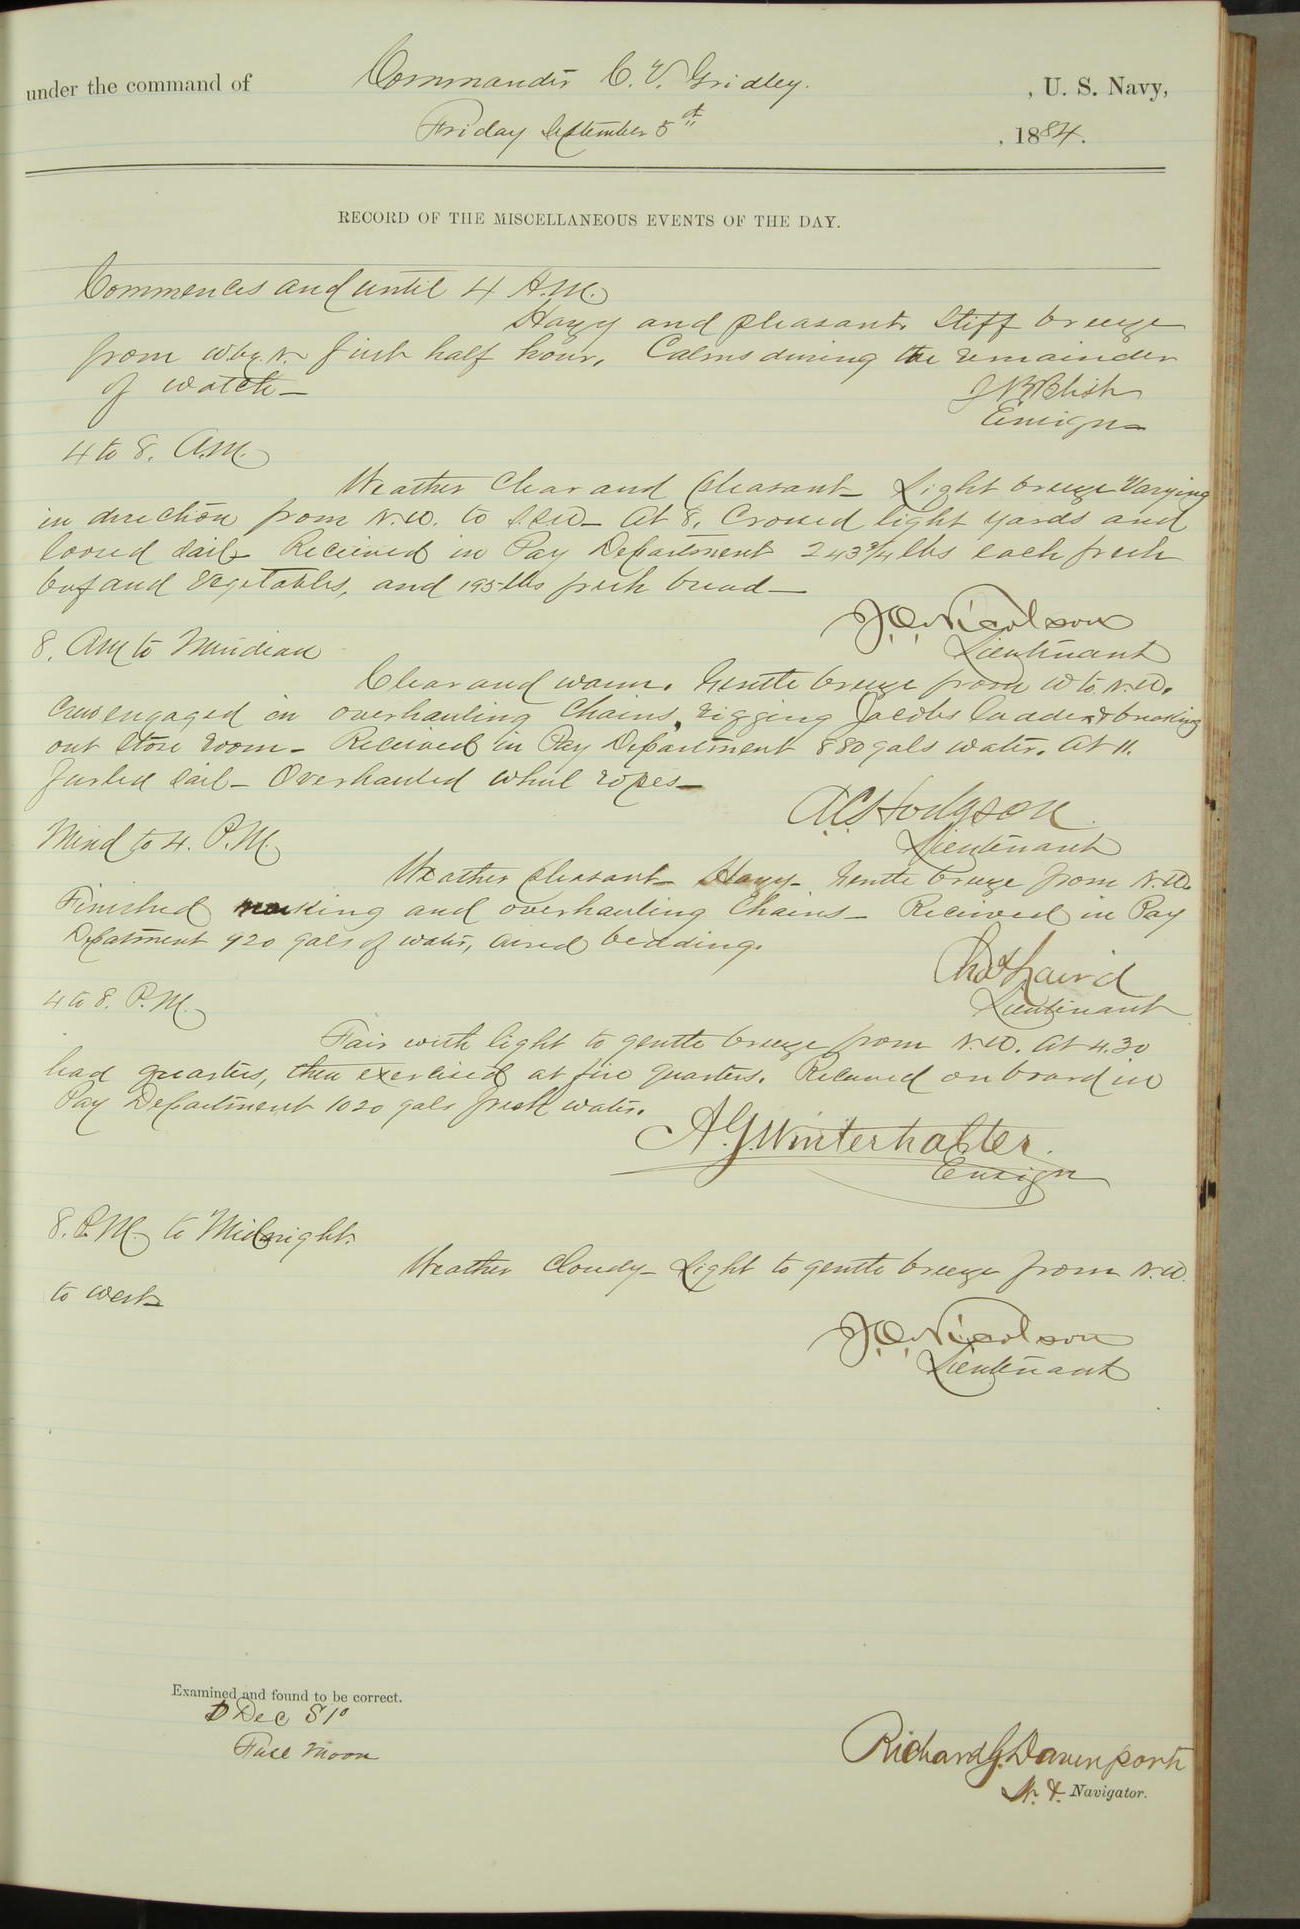 under the command of Commander C. V. Gridley. , U. S. Navy,
Friday September 5th , 1884.
RECORD OF THE MISCELLANEOUS EVENTS OF THE DAY.
Commences and until 4 A.M.
Hazy and pleasant. Stiff breeze
from W.by.N. first half hour, Calms during the remainder
of watch—
Ensign—
4 to 8. A.M.
Weather Clear and pleasant— Light breeze Varying
in direction from N.W. to S.S.W— At 8, Crossed light yards and
loosed sail— Recieved in Pay Department 243 3/4 lbs each fresh
beef and Vegetables, and 195 lbs fresh bread—
J.O. Nicolson
Lieutenant
8. AM to Meridian
Clear and warm. Gentle breeze from W to N.W.
Crew engaged in overhauling Chains, rigging Jacobs ladder & breaking
out Store room— Received in Pay Department 880 gals water. At 11.
furled sail— Overhauled wheel ropes—
A.C. Hodgson
Lieutenant
Merid to 4. P.M.
Weather pleasant— Hazy— Gentle breeze from N.W.
Finished marking and overhauling Chains— Received in Pay
Department 920 gals of water, aired bedding.
Chas Laird
Lieutenant
4 to 8. P.M.
Fair with light to gentle breeze from N.W. At 4.30
had quarters, then exercised at fire quarters. Received on board in
Pay Department 1020 gals fresh water.
A.G. Winterhalter.
Ensign
8. P.M. to Midnight.
Weather Cloudy— Light to gentle breeze from N.W.
to West—
J.O. Nicolson
Lieutenant
Examined and found to be correct.
Dec S 1°
Full Moon
Richard G. Davenport
Navigator.